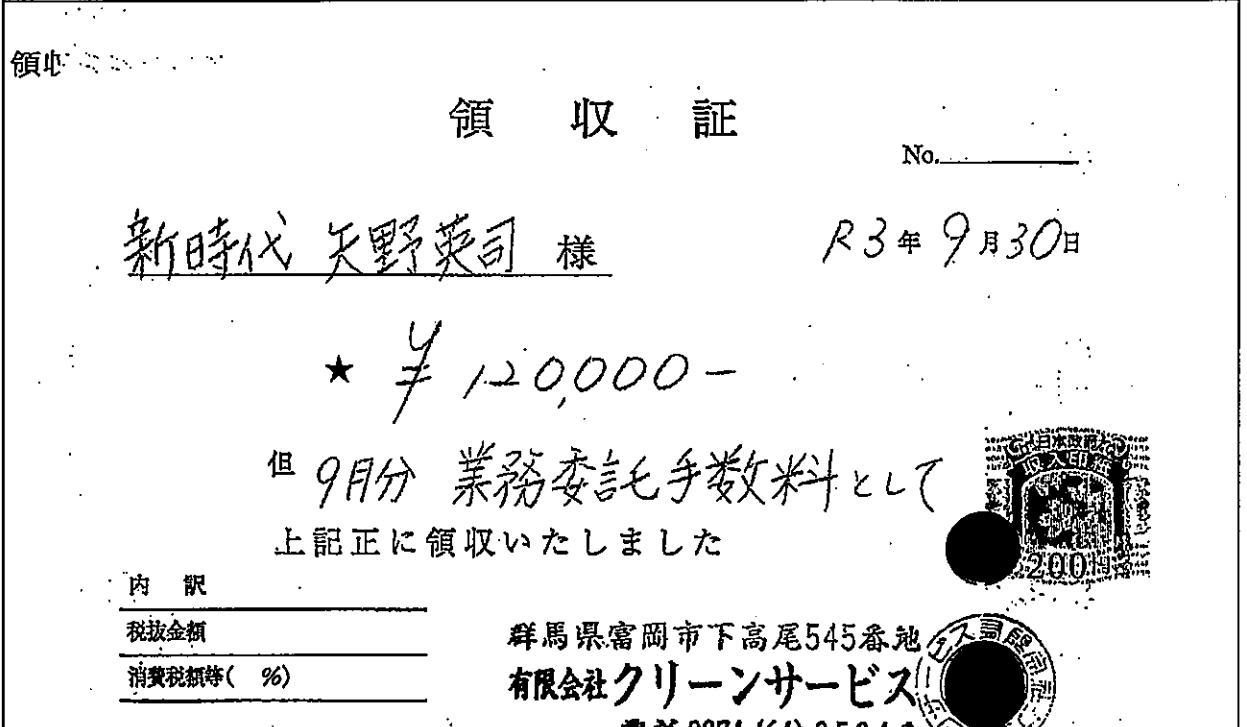 領収
領収証
No.
新時代 矢野英司 様
R3年9月30日
★ ¥120,000-
但 9月分 業務委託手数料として
上記正に領収いたしました
日本政府
収入印紙
200円
内訳
税抜金額
消費税額等( %)
群馬県富岡市下高尾545番地
有限会社クリーンサービス